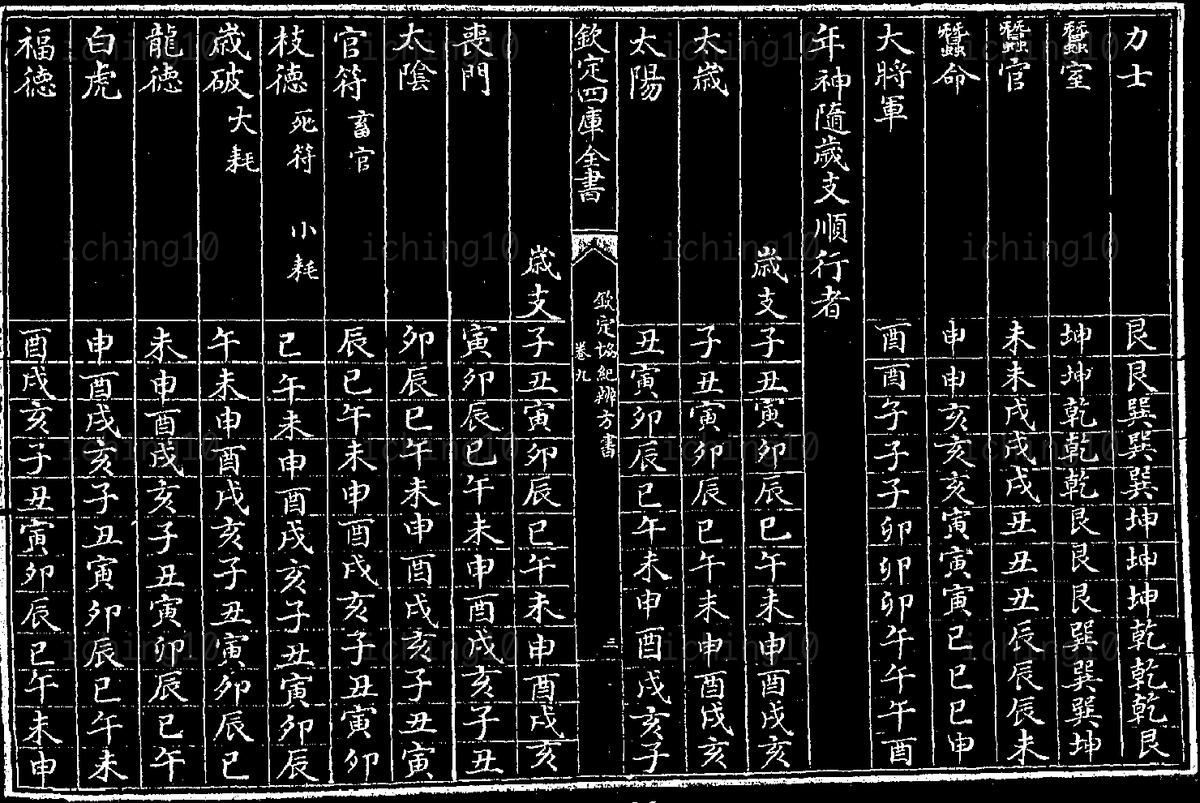 力士 艮艮巽巽巽坤坤坤乾乾乾艮
蠶室 坤坤乾乾乾艮艮艮巽巽巽坤
蠶官 未未戌戌戌丑丑丑辰辰辰未
蠶命 申申亥亥亥寅寅寅巳巳巳申
大將軍 酉酉子子子卯卯卯午午午酉
年神隨歲支順行者
歳支 子丑寅卯辰巳午未申酉戌亥
太歳 子丑寅卯辰巳午未申酉戌亥
太陽 丑寅卯辰巳午未申酉戌亥子
欽定四庫全書
欽定協紀辨方書
卷九
三
歳支 子丑寅卯辰巳午未申酉戌亥
喪門 寅卯辰巳午未申酉戌亥子丑
太陰 卯辰巳午未申酉戌亥子丑寅
官符 畜官 辰巳午未申酉戌亥子丑寅卯
枝德 死符 小耗 巳午未申酉戌亥子丑寅卯辰
歳破 大耗 午未申酉戌亥子丑寅卯辰巳
龍德 未申酉戌亥子丑寅卯辰巳午
白虎 申酉戌亥子丑寅卯辰巳午未
福德 酉戌亥子丑寅卯辰巳午未申
iching10 iching10 iching10 iching10
iching10 iching10 iching10 iching10
iching10 iching10 iching10 iching10
iching10 iching10 iching10 iching10